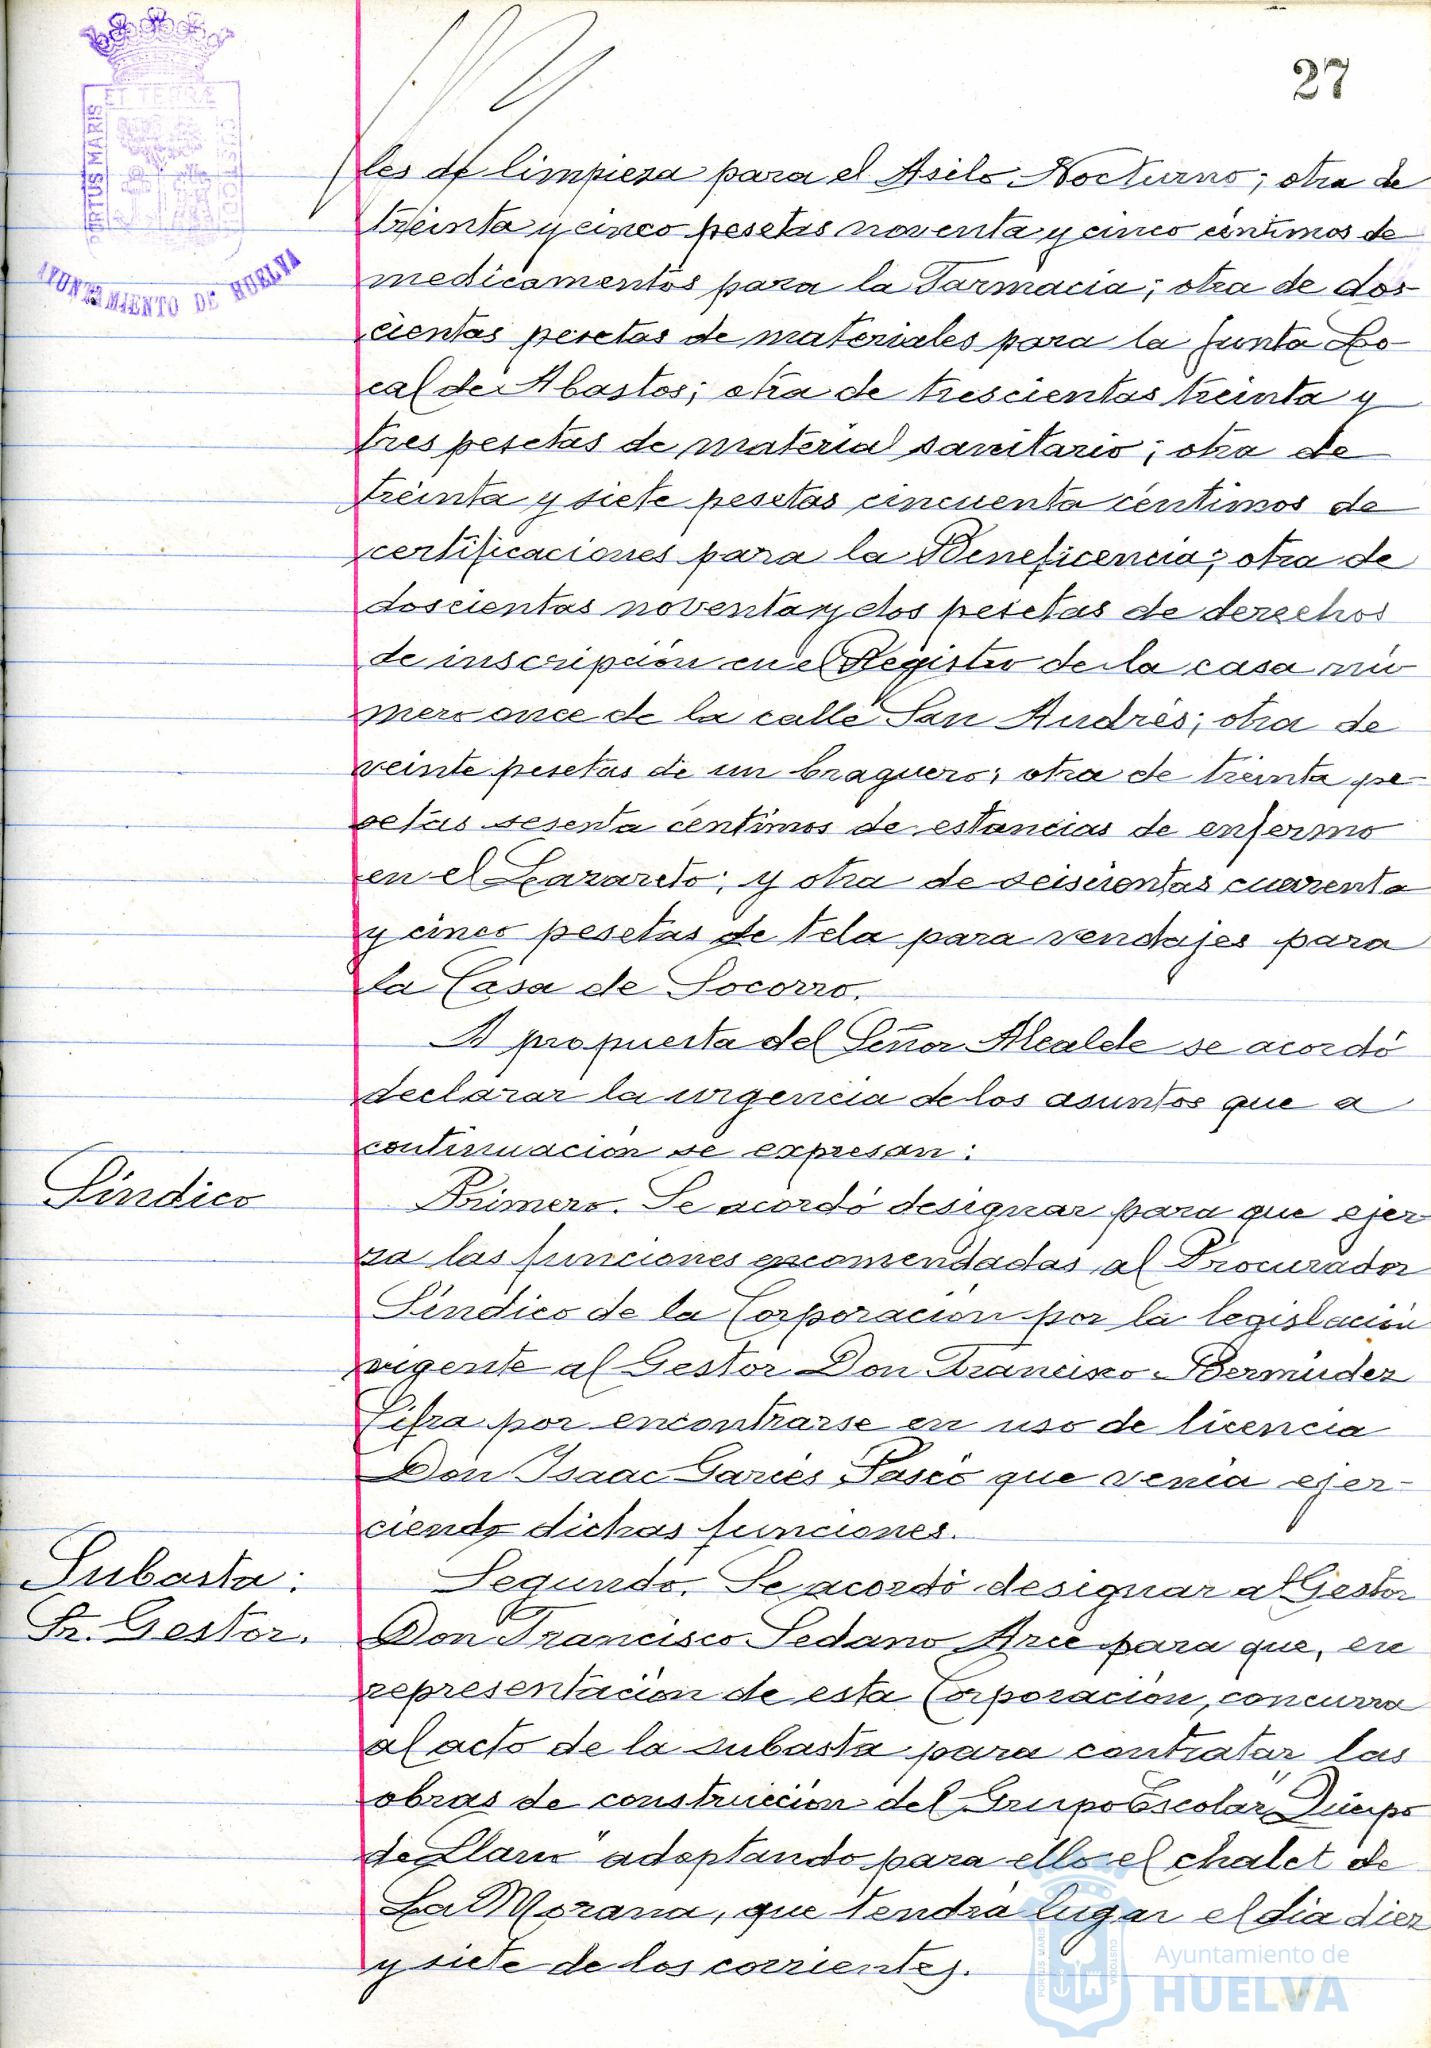 27
ET TERRÆ
PORTUS MARIS
CUSTODI
AYUNTAMIENTO DE HUELVA
les de limpieza para el Asilo Nocturno; otra de
treinta y cinco pesetas noventa y cinco céntimos de
medicamentos para la Farmacia; otra de dos-
cientas pesetas de materiales para la Junta Lo-
cal de Abastos; otra de trescientas treinta y
tres pesetas de material sanitario; otra de
treinta y siete pesetas cincuenta céntimos de
certificaciones para la Beneficencia; otra de
doscientas noventa y dos pesetas de derechos
de inscripción en el Registro de la casa nú
mero once de la calle San Andrés; otra de
veinte pesetas de un braguero; otra de treinta pe-
setas sesenta céntimos de estancias de enfermo
en el Lazareto; y otra de seiscientas cuarenta
y cinco pesetas de tela para vendajes para
la Casa de Socorro.
A propuesta del Señor Alcalde se acordó
declarar la urgencia de los asuntos que a
continuación se expresan:
Síndico
Primero. Se acordó designar para que ejer-
za las funciones encomendadas al Procurador
Síndico de la Corporación por la legislación
vigente al Gestor Don Francisco Bermúdez
Cifra por encontrarse en uso de licencia
Don Isaac Garcés Pascó que venía ejer-
ciendo dichas funciones.
Subasta:
Sr. Gestor.
Segundo. Se acordó designar al Gestor
Don Francisco Sedano Arce para que, en
representación de esta Corporación, concurra
al acto de la subasta para contratar las
obras de construcción del Grupo Escolar "Queipo
de Llano" adoptando para ello el chalet de
La Morana, que tendrá lugar el día diez
y siete de los corrientes.
PORTUS MARIS
CUSTODIA
Ayuntamiento de
HUELVA